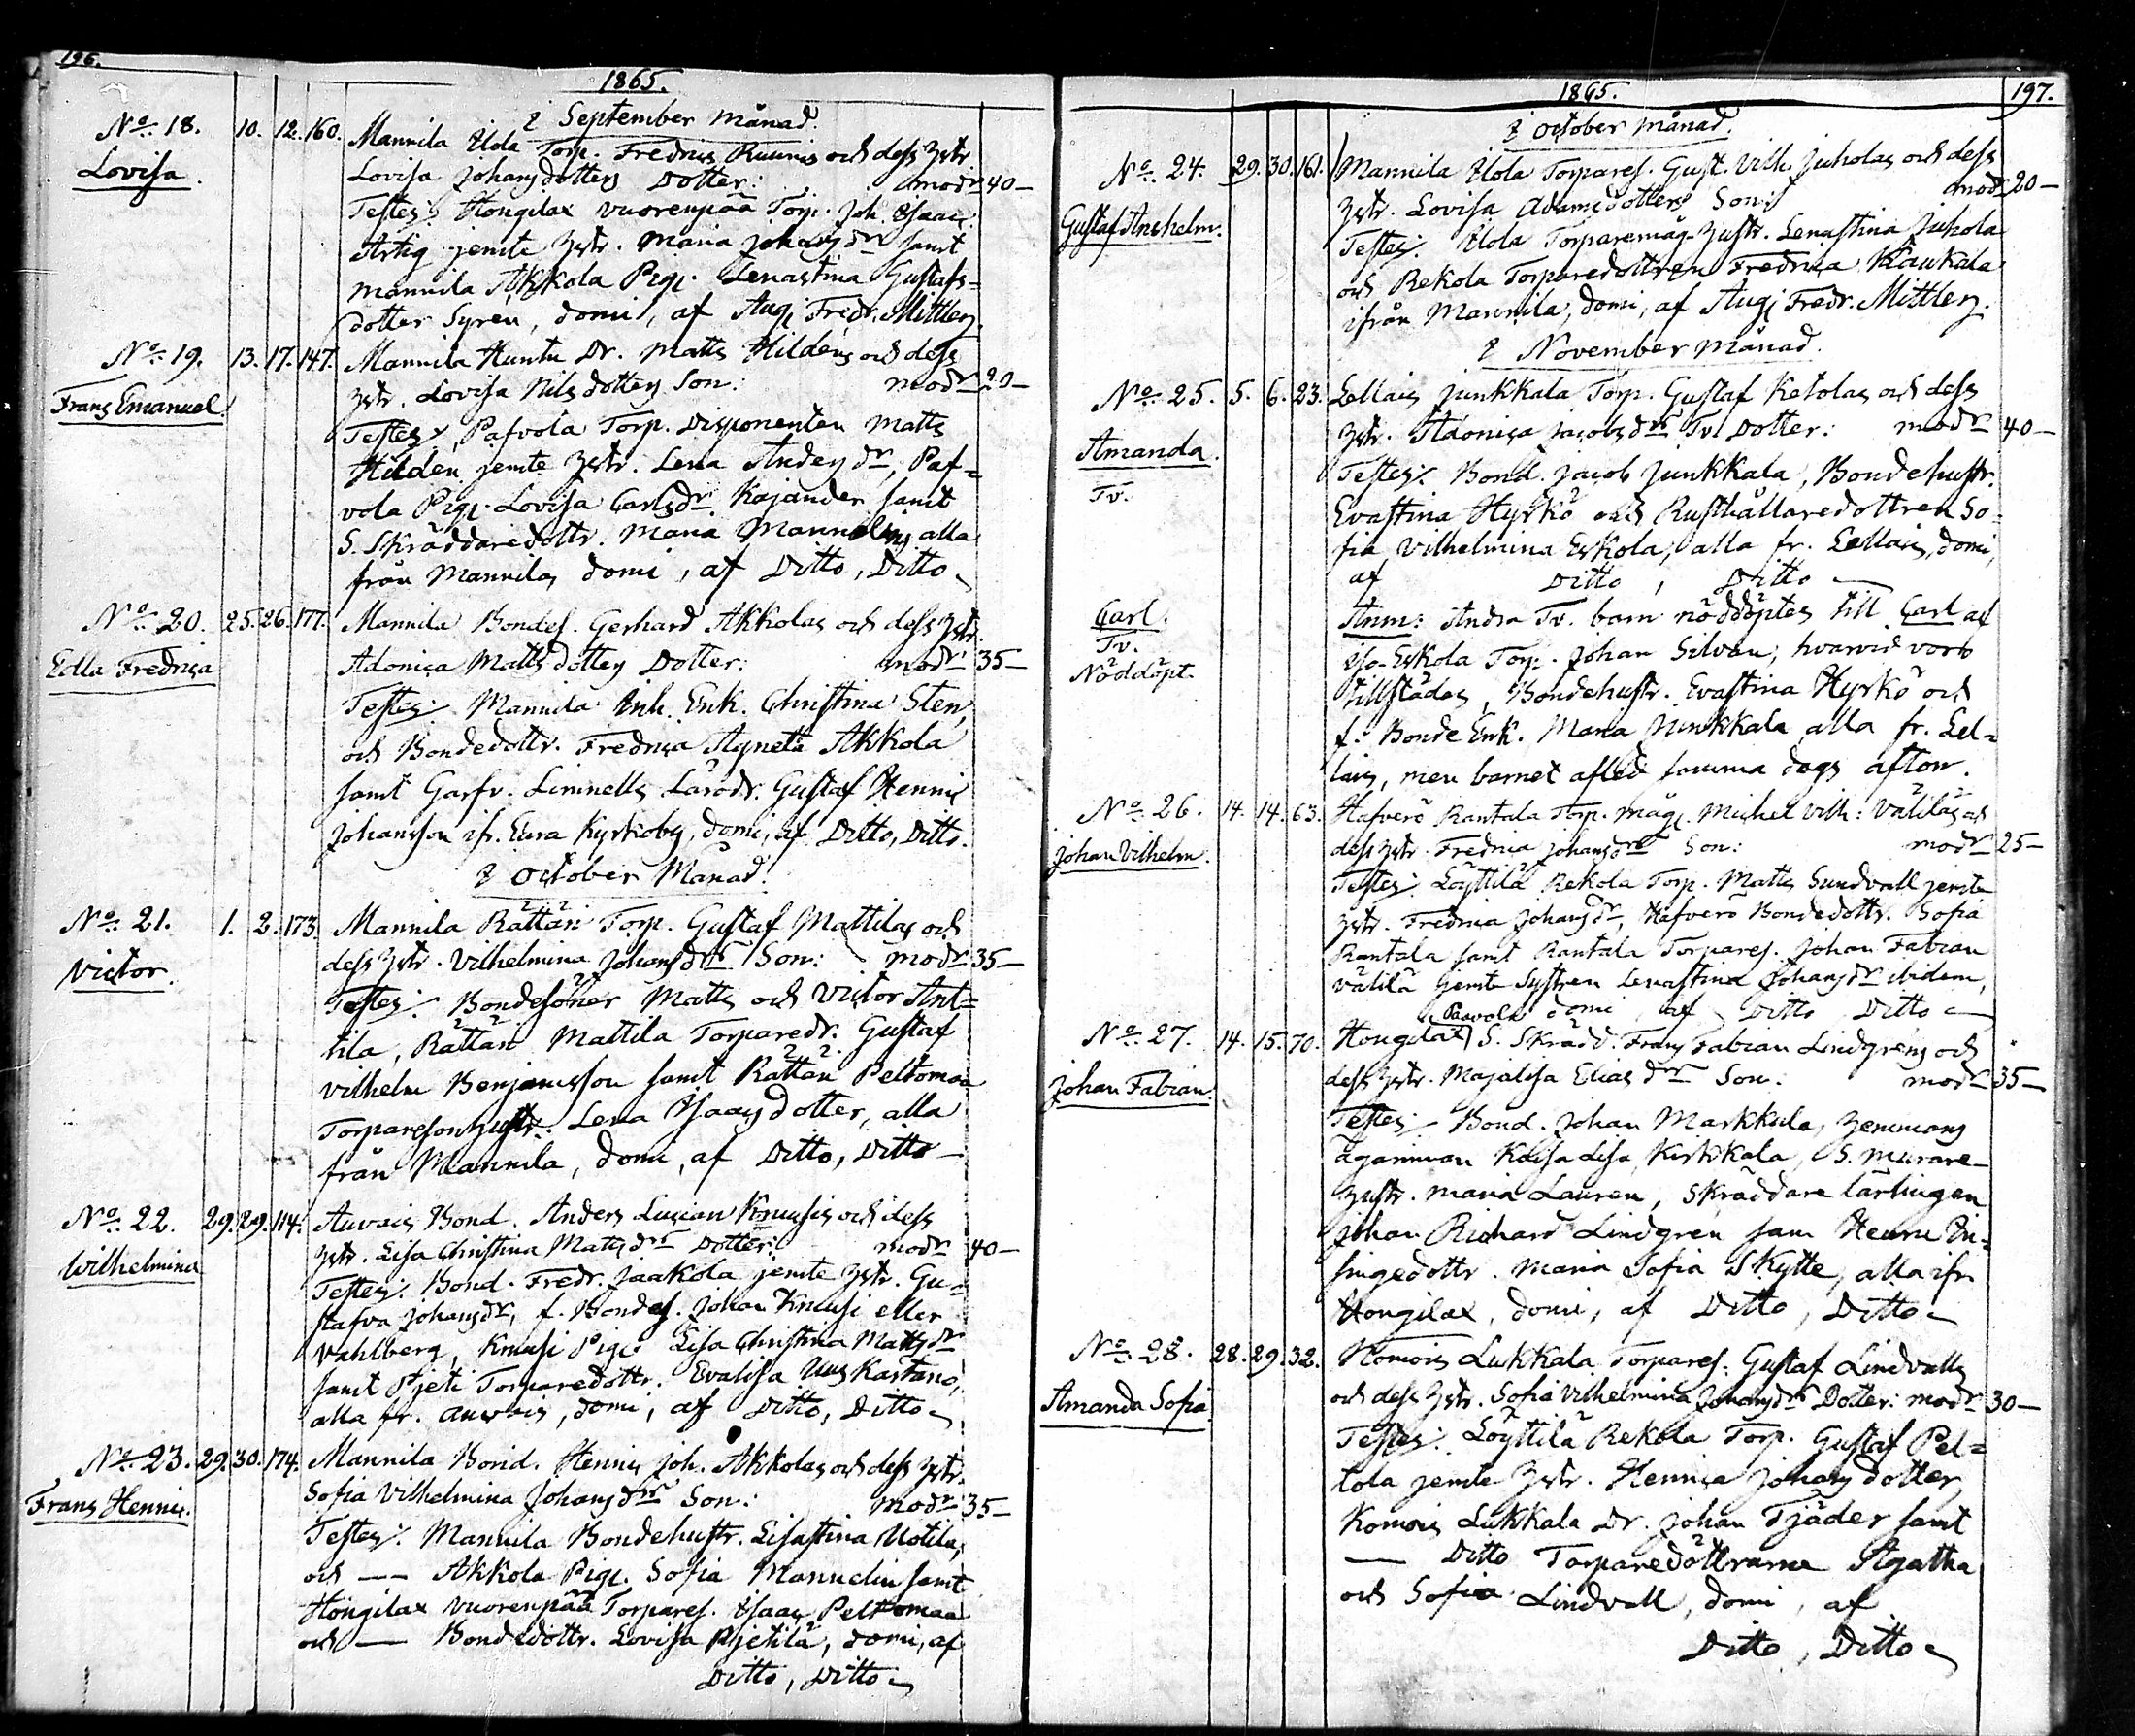 196.
1865.
i September månad.
No. 18. 10. 12. 160. Mannila Uola Torp. Fredrics Ruunis och dess Hstr.
Lovisa Lovisa Johansdotters Dotter: modr 40 —
Testes: Hongilax Vuorenpää Torp. Joh. Isaac
Artig jemte Hstr. Maria Johansdr samt
Mannila Akkola Pig. Lenastina Gustafs=
dotter Syren, domi, af Aug. Fredr. Mittler.
No. 19. 13. 17. 147. Mannila Huntu Dr. Matts Hildens och dess
Frans Emanuel. Hstr. Lovisa Nilsdotters Son: modr 20 —
Testes: Pafvola Torp. Disponenten Matts
Hilden jemte Hstr. Lena Andersdr, Paf=
vola Pig. Lovisa Carlsdr Kajander samt
S. Skräddaredottr. Maria Mannelin, alla
från Mannila, domi, af Ditto, Ditto
No. 20. 25. 26. 177. Mannila Bondes. Gerhard Akkolas och dess Hstr.
Edla Fredrica Adonica Mattsdotters Dotter: modr 35 —
Testes: Mannila Inh. Enk. Christina Sten,
och Bondedottr. Fredrica Agneta Akkola
samt Garfv. Limnells Lärodr. Gustaf Hennic
Johansson ifr. Eura Kyrkoby, domi, af Ditto, Ditto.
i October Månad.
No. 21. 1. 2. 173. Mannila Rättäri Torp. Gustaf Mattilas och
Victor. dess Hstr. Vilhelmina Johansdrs Son: modr 35 —
Testes: Bondesöner Matts och Victor Ant=
tila, Rättäri Mattila Torparedr. Gustaf
Vilhelm Benjamsson samt Rättäri Peltomaa
Torparesonhustr. Lena Isaacsdotter, alla
från Mannila, domi, af Ditto, Ditto —
No. 22. 29. 29. 114. Auvais Bond. Anders Lucian Knuusis och dess
Wilhelmina Hstr. Lisa Christina Mattsdrs Dotter: modr 40 —
Testes: Bond. Fredr. Jaakola jemte Hstr. Gu=
stafva Johansdr, f. Bondes. Johan Knuusi eller
Vahlberg, Knuusi Pig. Lisa Christina Mattsdr
samt Pjeti Torparedottr. Evalisa Uuskartano,
alla fr. Auvais, domi, af Ditto, Ditto
No. 23. 29. 30. 174. Mannila Bond. Hennic Joh. Akkolas och dess Hstr.
Frans Hennic. Sofia Vilhelmina Johansdrs Son: modr 35 —
Testes: Mannila Bondehustr. Lisastina Uotila,
och — Akkola Pig. Sofia Mannelin samt
Hongilax Vuorenpää Torpares. Isaac Peltomaa
och — Bondedottr. Lovisa Pjetilä, domi, af
Ditto, Ditto
1865. 197.
i October månad.
No. 24. 29. 30. 161. Mannila Uola Torpares. Gust. Vilh. Juholas och dess
Gustaf Anshelm. Hstr. Lovisa Adamsdotters Son: modr 20 —
Testes: Uola Torparemåg. Hustr. Lenastina Juhola
och Rekola Torparedottren Fredrica Kaukala
ifrån Mannila, domi, af Aug. Fredr. Mittler.
i November månad.
No. 25. 5. 6. 23. Lellais Junkkala Torp. Gustaf Ketolas och dess
Amanda. Hstr. Adonica Jacobsdrs Tv. Dotter: modr 40 —
Tv. Testes: Bond. Jacob Junkkala, Bondehustr.
Evastina Hyrkö och Rusthållaredottren So=
fia Vilhelmina Eskola, alla fr. Lellais, domi,
af Ditto, Ditto —
Carl. Anm: Andra Tv. barn nöddöptes till Carl af
Tv. Iso-Eskola Torp. Johan Silvan, hvarvid voro
Nöddöpt. tillstädes, Bondehustr. Evastina Hyrkö och
f. Bonde Enk. Maria Junkkala alla fr. Lel=
lais, men barnet afled samma dags afton.
No. 26. 14. 14. 63. Hafverö Rantala Torp. måg. Michel Vilh: Väliläs och
Johan Vilhelm. dess Hstr. Fredrica Johansdrs Son: modr 25 —
Testes: Löyttilä Rekola Torp. Matts Sundvall jemte
Hstr. Fredrica Johansdr, Hafverö Bondedottr. Sofia
Rantala samt Rantala Torpares. Johan Fabian
Välilä jemte Systren Lenastina Johansdr ibidem,
domi, af Ditto, Ditto —
No. 27. 14. 15. 70. Hongilax Paavola S. Skrädd. Frans Fabian Lindgrens och
Johan Fabian. dess Hstr. Majalisa Eliasdrs Son: modr 35 —
Testes: Bond. Johan Markkula, Hemmans
ägarinnan Kaisa Lisa Kirkkala, S. Murare-
Hustr. Maria Lauren, Skräddare lärlingen
Johan Richard Lindgren sam Henne In=
hysingedottr. Maria Sofia Skytte, alla ifr.
Hongilax, domi, af Ditto, Ditto
No. 28. 28. 29. 32. Komois Lukkala Torpares. Gustaf Lindvalls
Amanda Sofia. och dess Hstr. Sofia Vilhelmina Johansdrs Dotter: modr 30 —
Testes: Löyttilä Rekola Torp. Gustaf Pel=
tola jemte Hstr. Hennica Johansdotter,
Komois Lukkala Dr. Johan Tjäder samt
— Ditto Torparedöttrarne Agatha
och Sofia Lindvall, domi, af
Ditto, Ditto